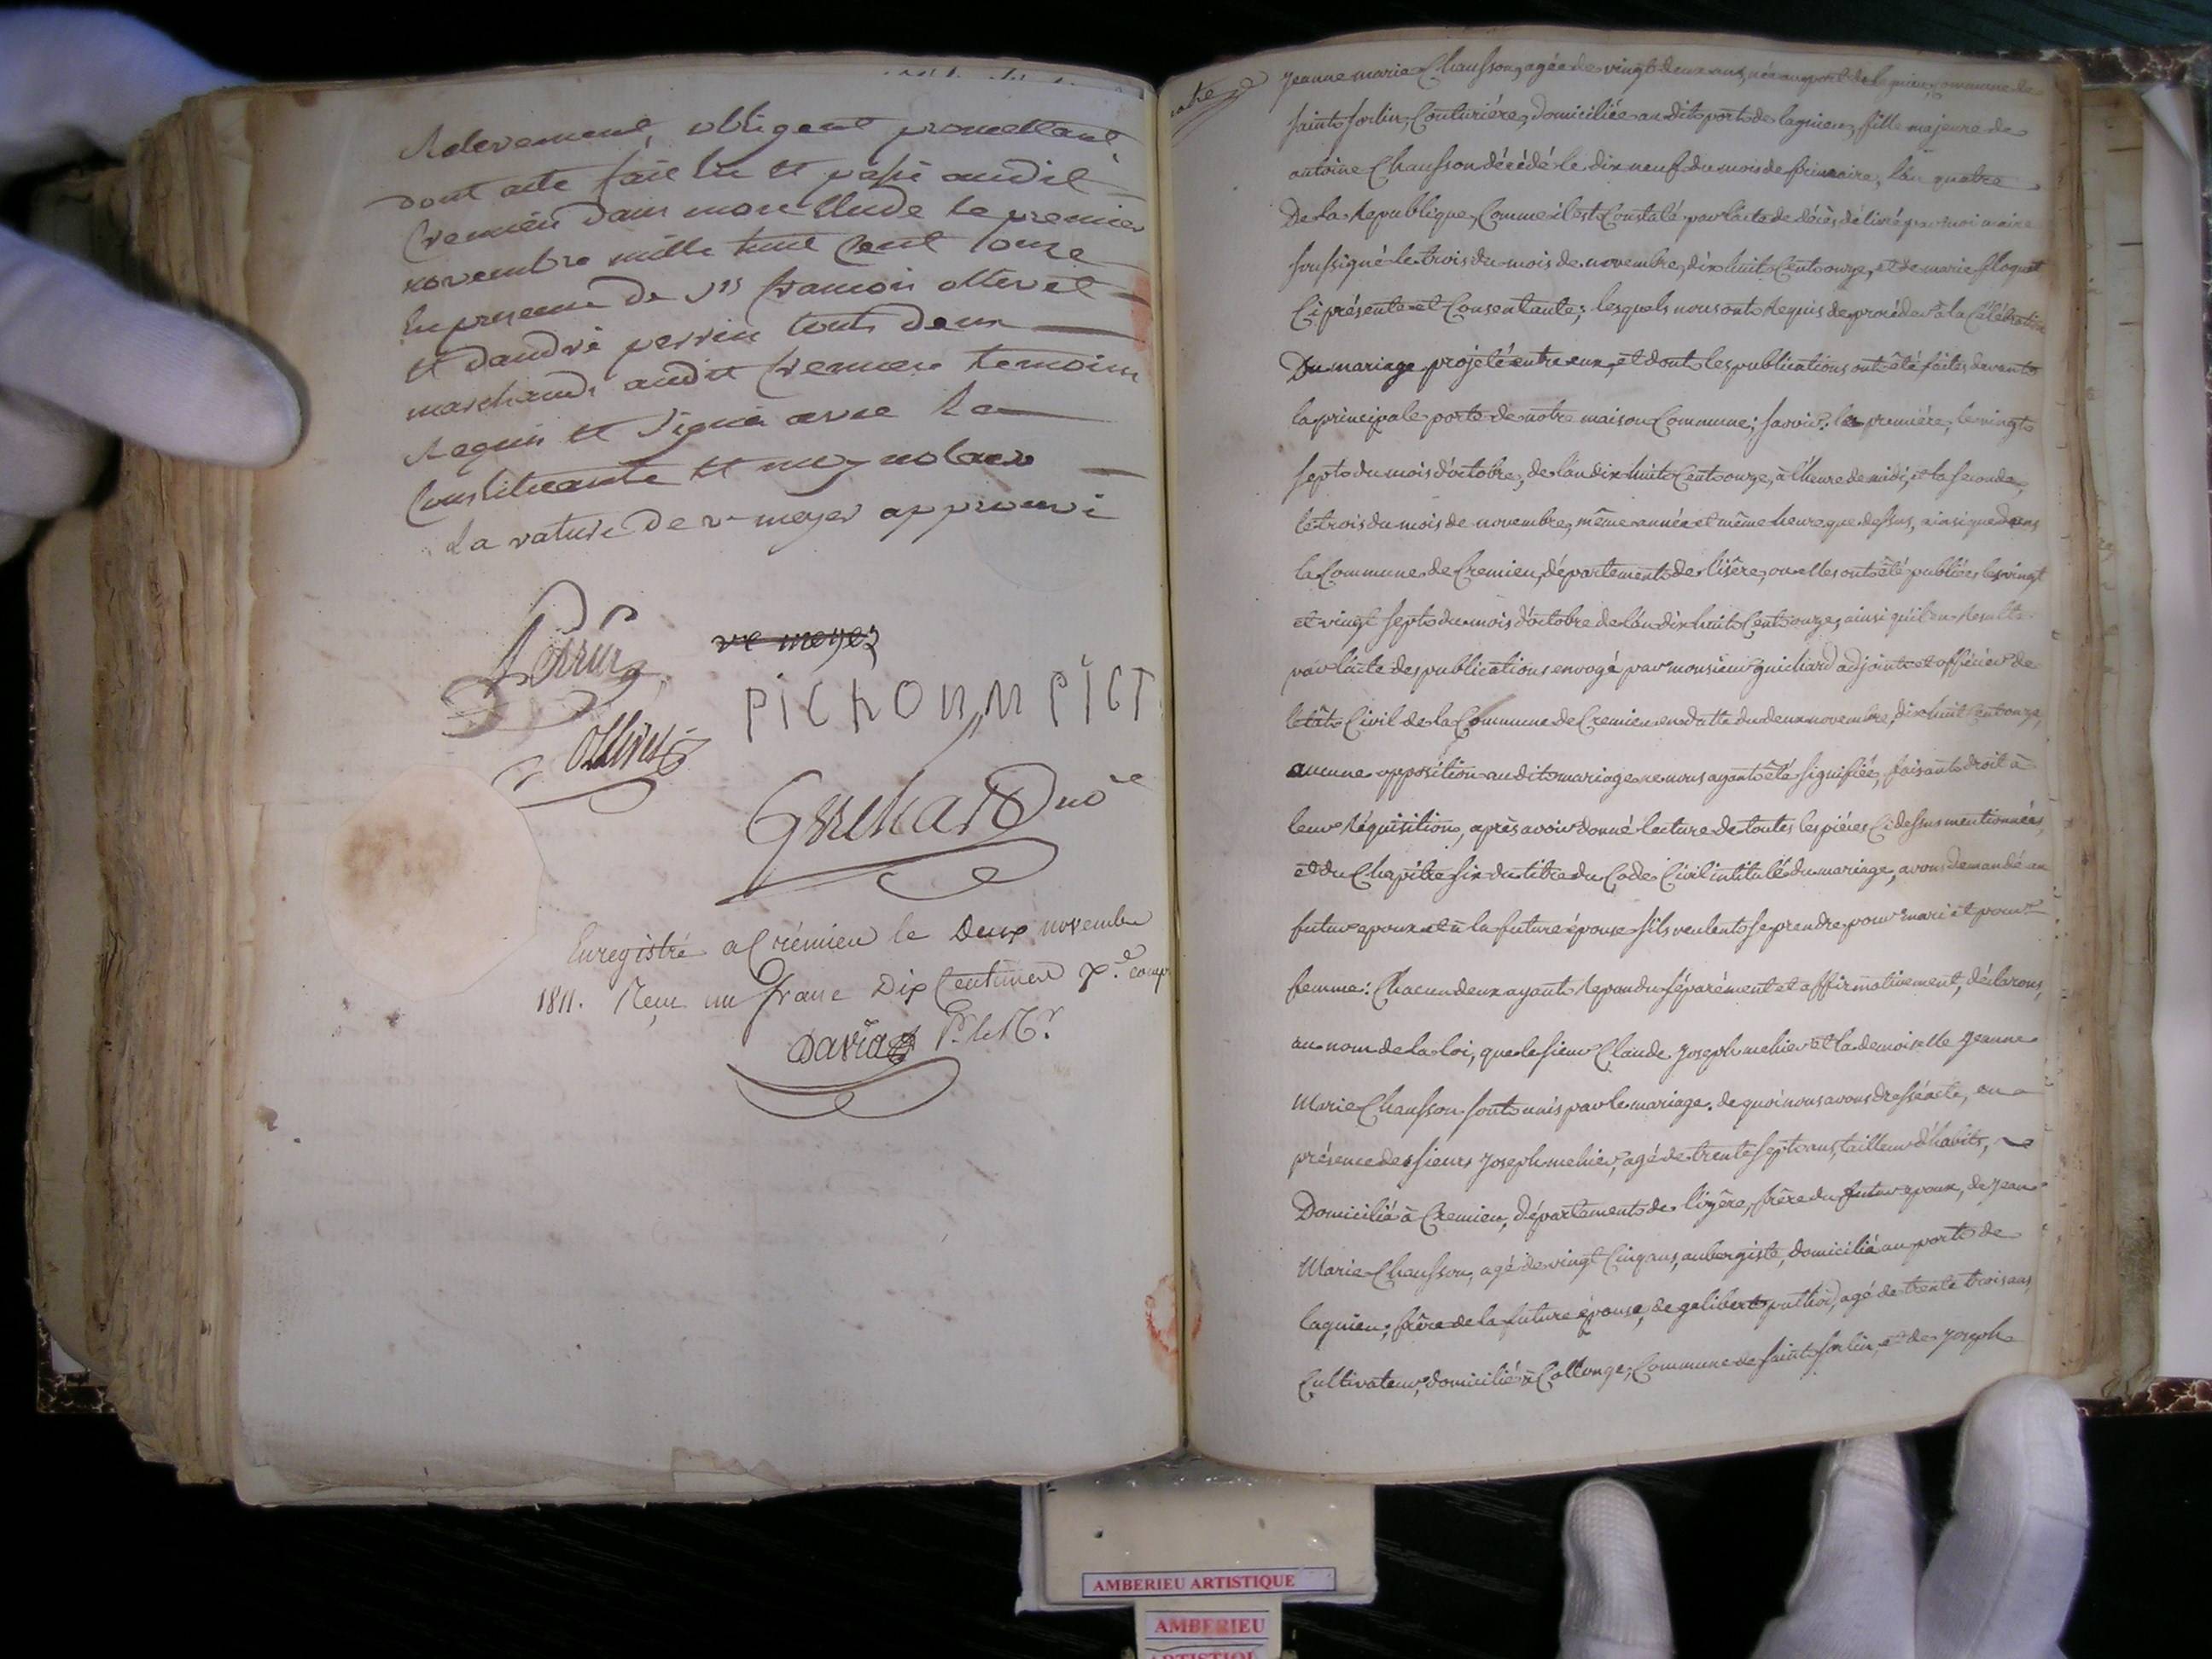 Relevement, obligeant promettant
dont acte fait lu et passé audit
Cremieu dans mon Etude le premier
novembre mille huit cent onze
En presence de Srs francois ollivet
et d'andré perrin touts deux
marchands audit Cremieu temoins
Requis et signés avec la
Constituante et moy notaire
La rature de ve meyer approuvé
Perrin
ve meyer
PICHON, M PICT
ollivet
Guichard no.re
Enregistré a Crémieu le Deux novembre
1811. Reçu un franc Dix Centimes
David
jeanne marie Chausson, agée de vingt deux ans, née au port de lagnieu, commune de
saint sorlin, Couturiére, domiciliée au dit port de lagnieu, fille majeure de
antoine Chausson décédé le dix neuf du mois de frimaire, l'an quatre
De la Republique, Comme il est Constaté par l'acte de décès délivré par moi maire
soussigné le trois du mois de novembre, dix huit Cent onze, et de marie
Ci présente et Consentante; lesquels nous ont Requis de procéder à la Célébration
Du mariage projeté entre eux, et dont les publications ont été faites devant
la principale porte de notre maison Commune; savoir: la premiére, le vingt
sept du mois d'octobre, de l'an dix huit Cent onze, à l'heure de midi, et la seconde,
le trois du mois de novembre, même année et même heure que dessus, ainsi que dans
la Commune de Cremieu, département de l'isère, ou elles ont été publiées les vingt
et vingt sept du mois d'octobre de l'an dix huit Cent onze, ainsi qu'il en Resulte
par l'acte des publications envoyé par monsieur guichard adjoint et officier de
l'état Civil de la Commune de Cremieu en datte du deux novembre, dix huit Cent onze,
aucune opposition au dit mariage ne nous ayant été signifiée, faisant droit à
leur Réquisition, après avoir donné lecture de toutes les piéces Ci dessus mentionnées,
et du Chapitre six du titre du Code Civil intitulé du mariage, avons demandé au
futur epoux et à la future épouse s'ils veulent se prendre pour mari et pour
femme: Chacun d'eux ayant Repondu séparément et affirmativement, déclarons,
au nom de la loi, que le sieur Claude joseph mehier et la demoiselle jeanne
Marie Chausson sont unis par le mariage. de quoi nous avons dressé acte, en
présence des sieurs joseph mehier, agé de trente sept ans, tailleur d'habits,
Domicilié à Cremieu, département de l'izère, frère du futur epoux, de jean
Marie Chausson, agé de vingt Cinq ans, aubergiste, domicilié au port de
lagnieu, frère de la future épouse, de galibert puthod, agé de trente trois ans,
Cultivateur, domicilié à Collonge, Commune de saint sorlin, et de joseph
AMBERIEU ARTISTIQUE
AMBERIEU
ARTISTIQUE